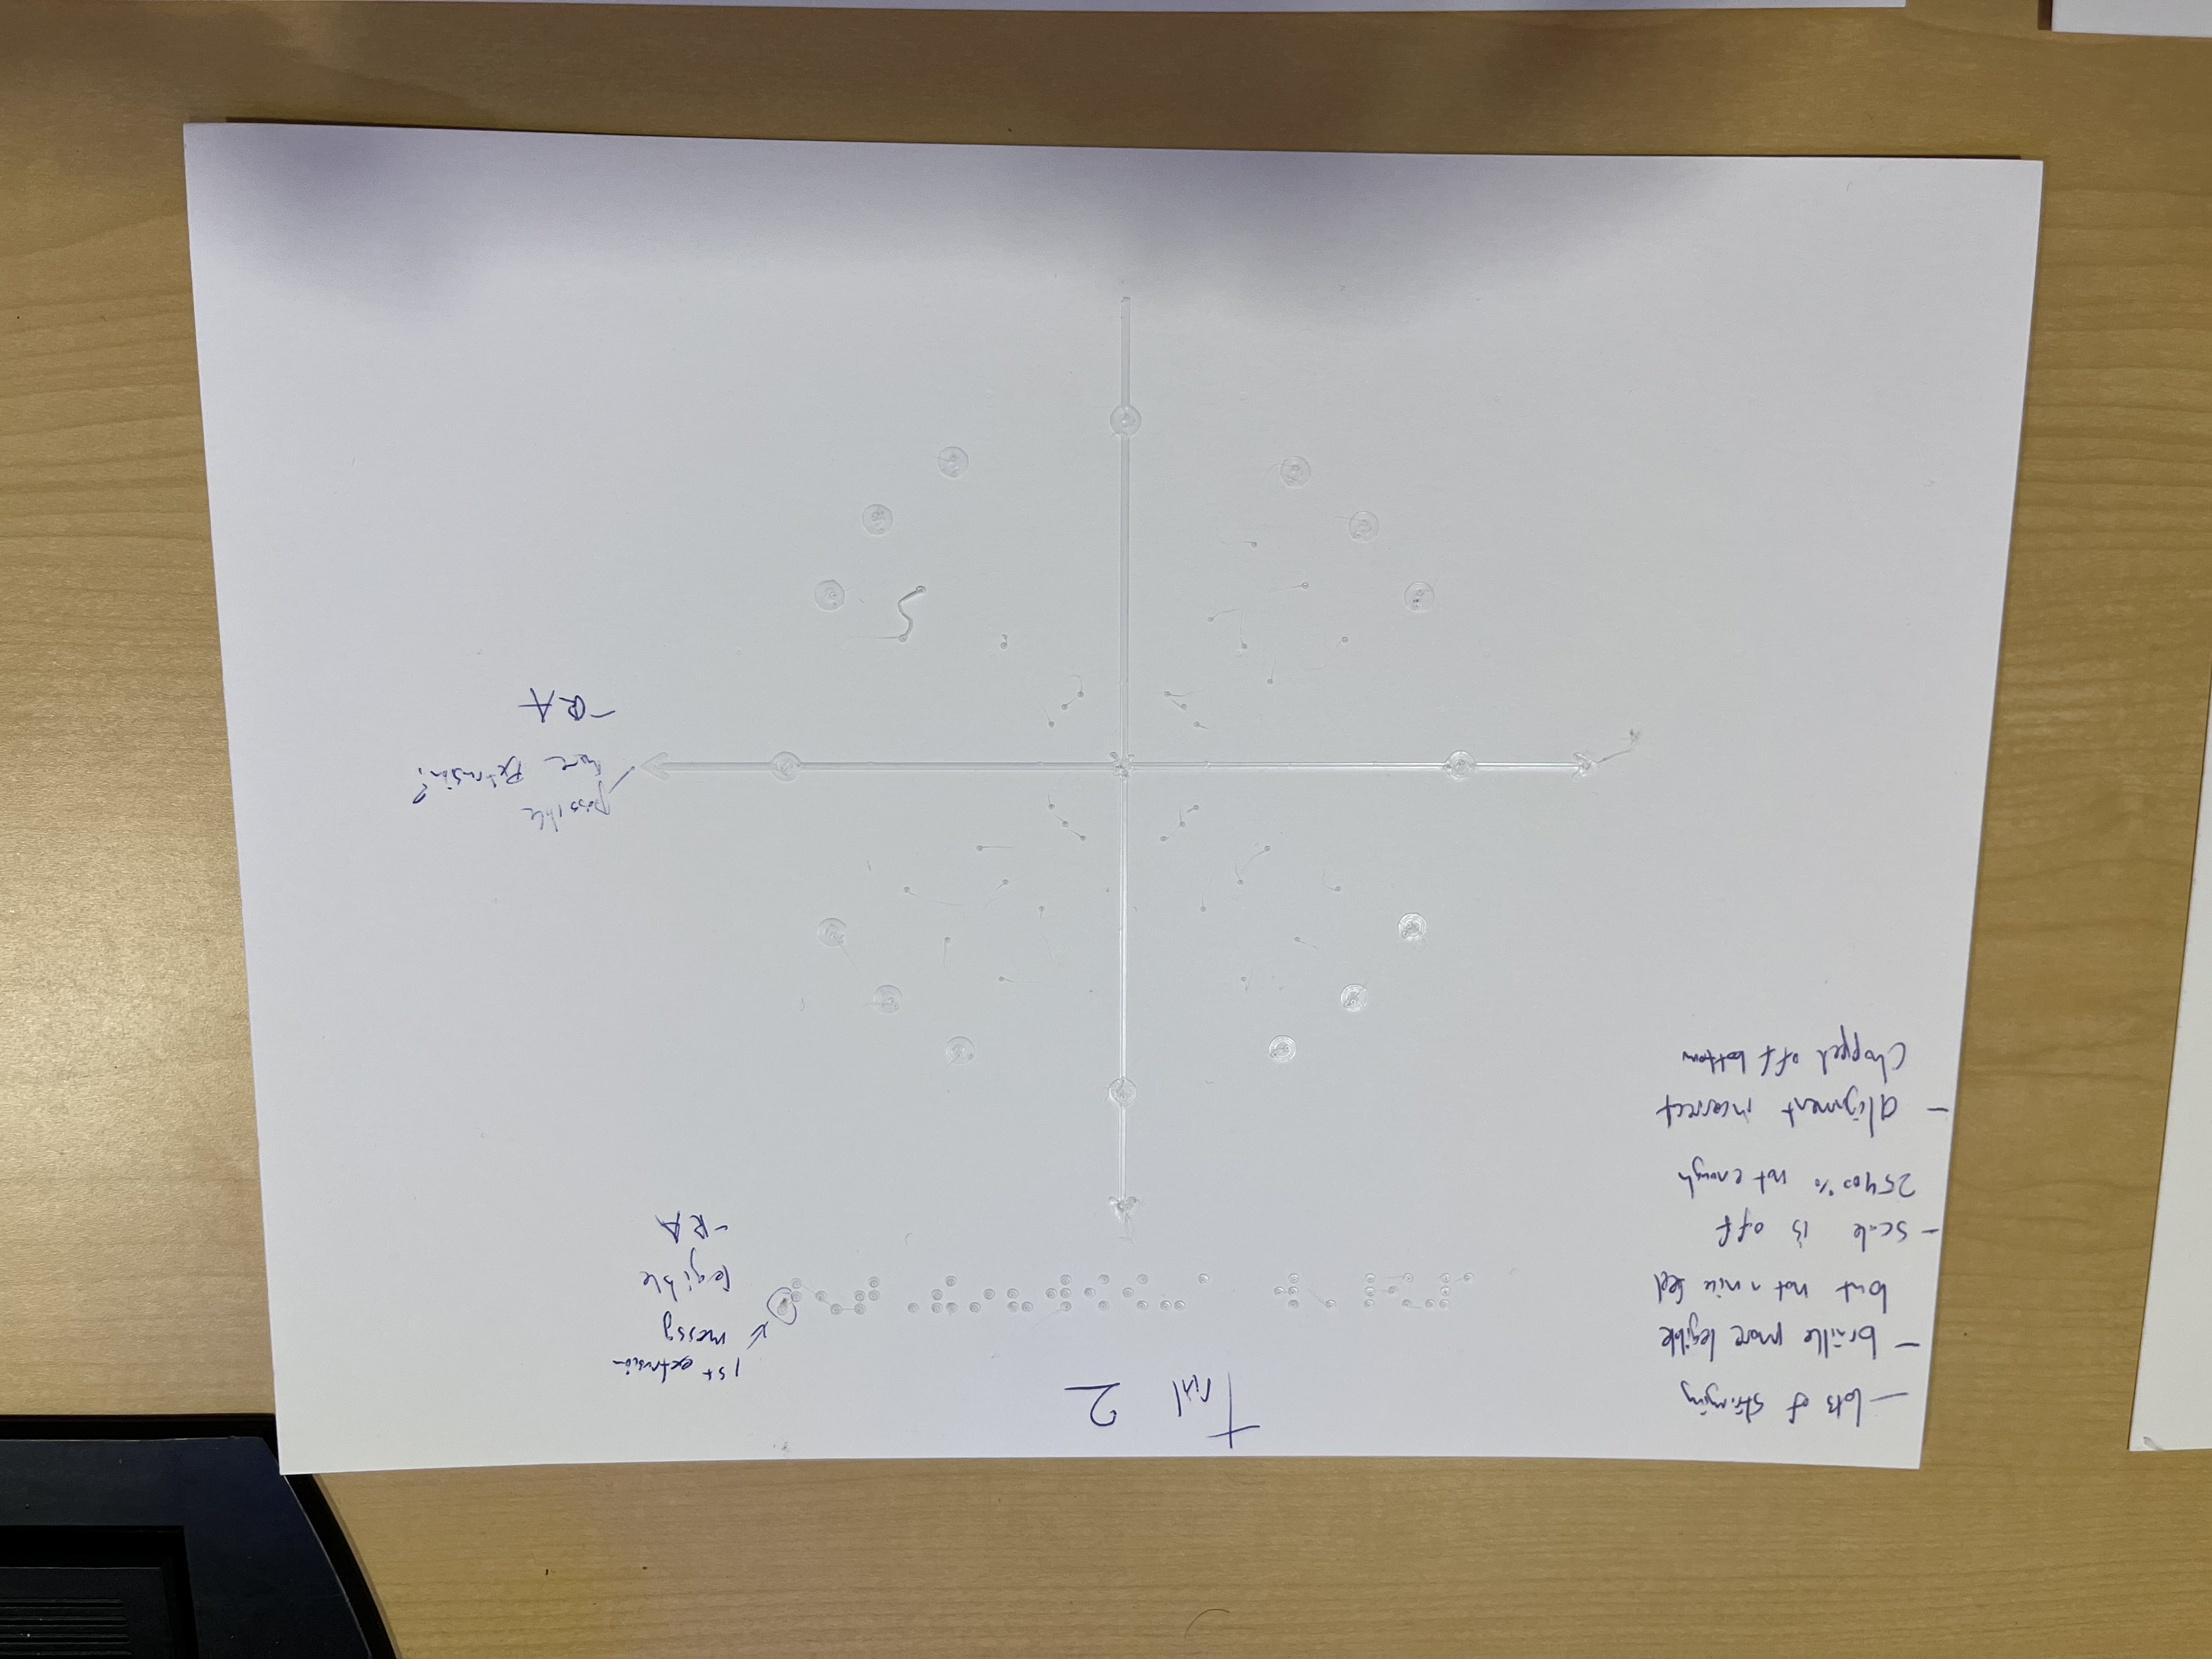 Trial 2
- lots of stringing
- braille more legible
but not a nice feel
- scale is off
25400% not enough
- alignment incorrect
chopped off bottom
1st extrusion
messy
legible
-RA
possible
more extrusion?
-RA